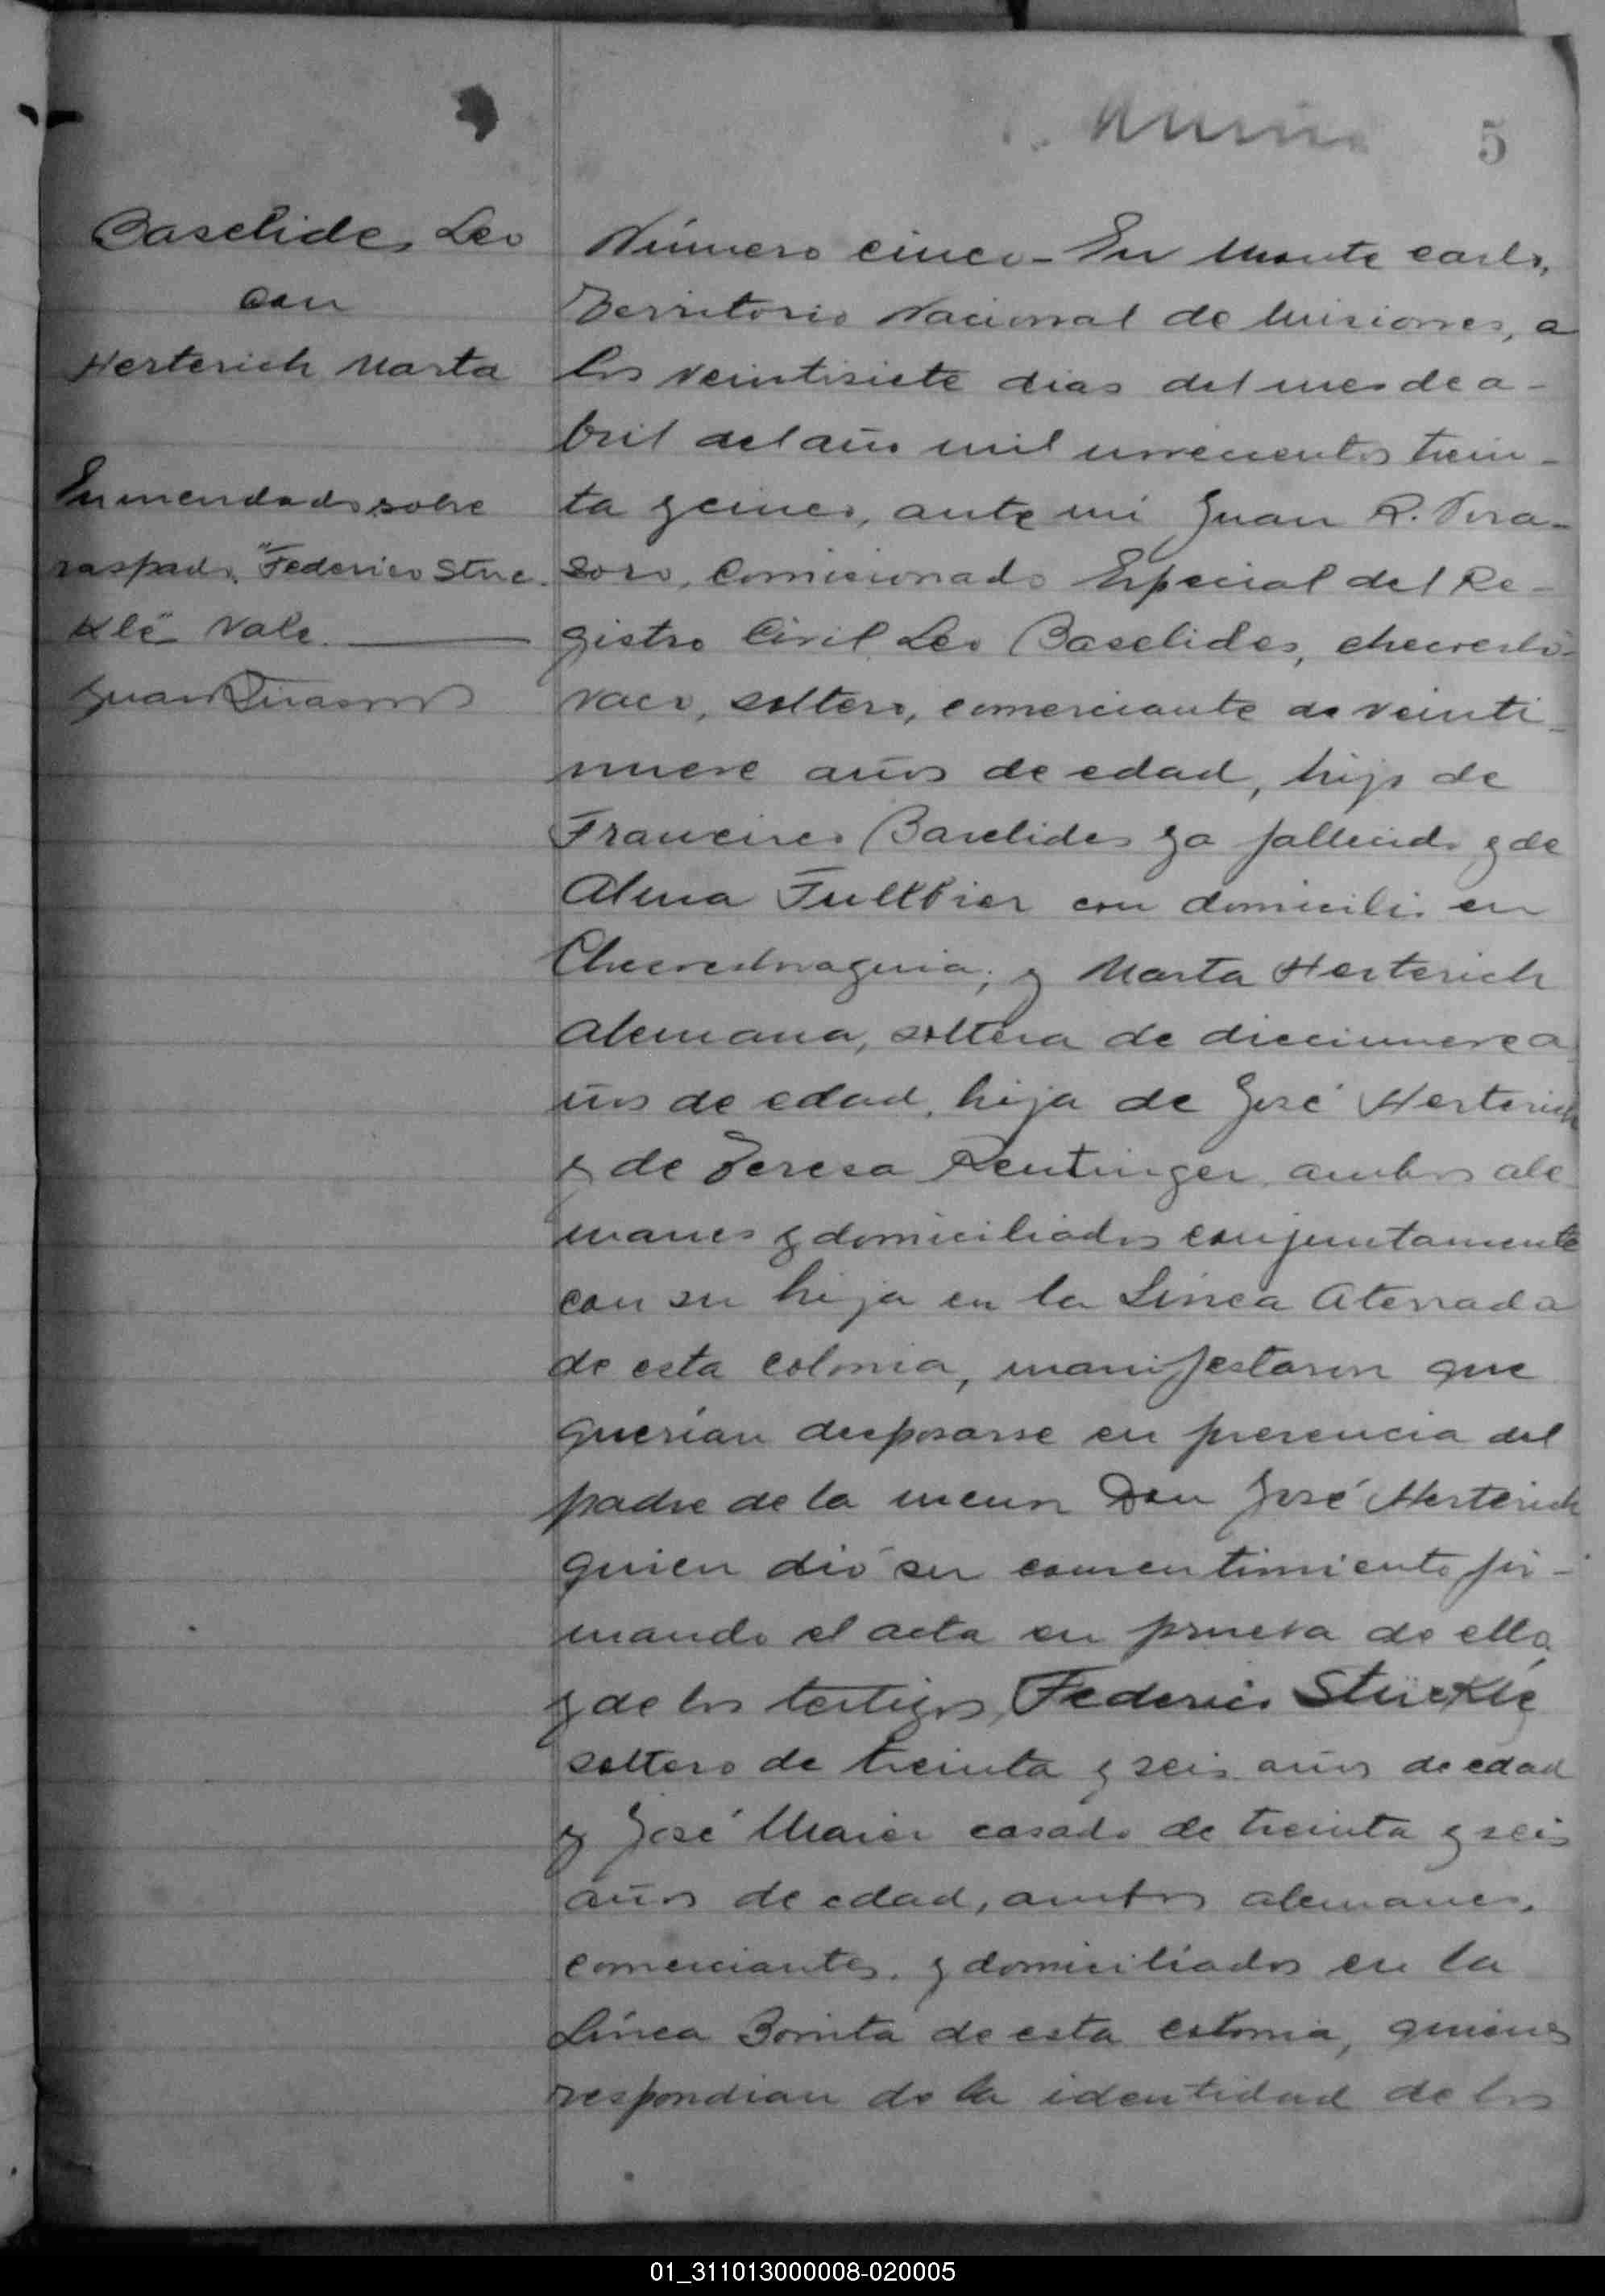 5
Baselides Leo
con
Herterich Marta
Enmendado sobre
raspado "Federico Stüc
klé" Vale.
Número cinco - En Monte carlo,
Territorio Nacional de Misiones, a
los veintisiete dias del mes de a-
bril del año mil novecientos trein-
ta y cinco, ante mi Juan R. Vira-
soro, Comisionado Especial del Re-
gistro Civil, Leo Baselides, checoeslo-
vaco, soltero, comerciante de veinti-
nueve años de edad, hijo de
Francisco Baselides ya fallecido y de
Alma con domicilio en
Checoeslovaquia; y Marta Herterich
alemana, soltera de diecinueve a
ños de edad, hija de José Herterich
y de Teresa Reutinger, ambos ale
manes y domiciliados conjuntamente
con su hija en la Línea Aterrada
de esta colonia, manifestaron que
querían desposarse en presencia del
padre de la menor Don José Herterich
quien dió su consentimiento fir-
mando el acta en prueba de ello,
y de los testigos, Federico Stücklé
soltero de treinta y seis años de edad
y José Maier casado de treinta y seis
años de edad, ambos alemanes,
comerciantes, y domiciliados en la
Línea Bonita de esta colonia, quienes
respondian de la identidad de los
01_311013000008-020005